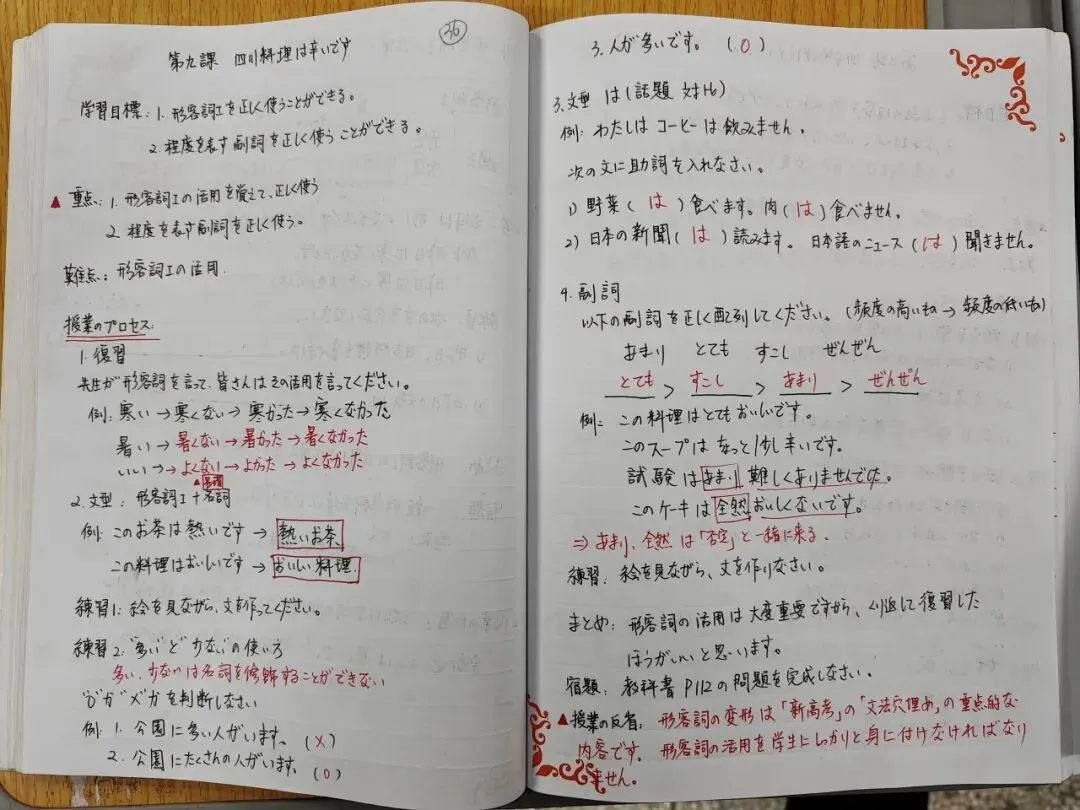 36
第九課 四川料理は辛いです
学習目標：1. 形容詞Iを正しく使うことができる。
2. 程度を表す副詞を正しく使うことができる。
▲ 重点：1. 形容詞Iの活用を覚えて、正しく使う
2. 程度を表す副詞を正しく使う。
難点：形容詞Iの活用.
授業のプロセス:
1. 復習
先生が形容詞を言って、皆さんはその活用を言ってください。
例: 寒い → 寒くない → 寒かった → 寒くなかった
暑い → 暑くない → 暑かった → 暑くなかった
いい → よくない → よかった → よくなかった
2. 文型：形容詞I + 名詞
例: このお茶は熱いです → 熱いお茶.
この料理はおいしいです → おいしい料理.
練習1: 絵を見ながら、文を作ってください。
練習2: "多い"と"少ない"の使い方
多い、少ないは名詞を修飾することができない
"○"か"×"かを判断しなさい
例: 1. 公園に多い人がいます。(×)
2. 公園にたくさんの人がいます。(○)
3. 人が多いです。(○)
3. 文型 は(話題 対比)
例: わたしは コーヒーは飲みません。
次の文に助詞を入れなさい。
1) 野菜( は )食べます。肉( は )食べません。
2) 日本の新聞( は )読みます。 日本語のニュース(は)聞きません。
4. 副詞
以下の副詞を正しく配列してください。(頻度の高いもの → 頻度の低いもの)
あまり とても すこし ぜんぜん
とても > すこし > あまり > ぜんぜん
例: この料理はとてもおいしいです。
このスープはちょっと/少し辛いです。
試験はあまり難しくありませんでした。
このケーキは全然おいしくないです。
⇒ あまり、全然は「否定」と一緒に来る.
練習：絵を見ながら、文を作りなさい。
まとめ：形容詞の活用は大変重要ですから、くり返して復習した
ほうがいいと思います。
宿題：教科書 P112の問題を完成しなさい。
▲授業の反省：形容詞の変形は「新高考」の「文法穴埋め」の重点的な
内容です。形容詞の活用を学生にしっかりと身に付けなければなり
ません。